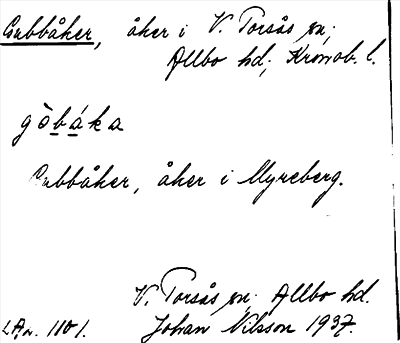 Gubbåker, åker i V. Torsås sn;
Allbo hd; Kronob. l.
gȯ̀bȧ́ka
Gubbåker, åker i Myreberg.
V. Torsås sn. Allbo hd.
LAL. 1101. Johan Nilsson 1937.